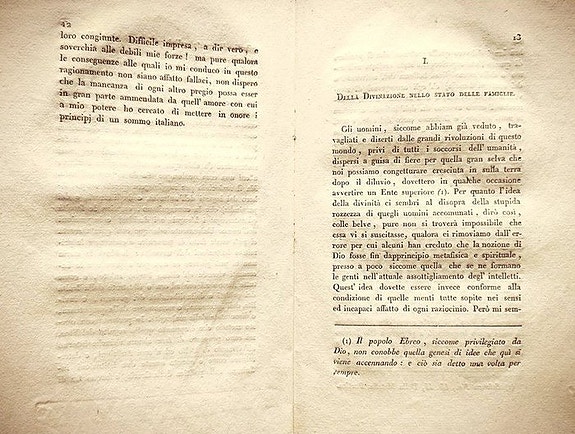 12
loro congiunte. Difficile impresa, a dir vero, e
soverchia alle debili mie forze! ma pure qualora
le conseguenze alle quali io mi conduco in questo
ragionamento non siano affatto fallaci, non dispero
che la mancanza di ogni altro pregio possa esser
in gran parte ammendata da quell' amore con cui
a mio potere ho cercato di mettere in onore i
principj di un sommo italiano.
13
I.
DELLA DIVINAZIONE NELLO STATO DELLE FAMIGLIE.
Gli uomini, siccome abbiam già veduto, tra-
vagliati e diserti dalle grandi rivoluzioni di questo
mondo, privi di tutti i soccorsi dell' umanità,
dispersi a guisa di fiere per quella gran selva che
noi possiamo congetturare cresciuta in sulla terra
dopo il diluvio, dovettero in qualche occasione
avvertire un Ente superiore (1). Per quanto l'idea
della divinità ci sembri al disopra della stupida
rozzezza di quegli uomini accomunati, dirò così,
colle belve, pure non si troverà impossibile che
essa vi si suscitasse, qualora ci rimoviamo dall'er-
rore per cui alcuni han creduto che la nozione di
Dio fosse fin dapprincipio metafisica e spirituale,
presso a poco siccome quella che se ne formano
le genti nell'attuale assottigliamento degl'intelletti.
Quest'idea dovette essere invece conforme alla
condizione di quelle menti tutte sopite nei sensi
ed incapaci affatto di ogni raziocinio. Però mi sem-
(1) Il popolo Ebreo, siccome privilegiato da
Dio, non conobbe quella genesi di idee che quì si
viene accennando: e ciò sia detto una volta per
sempre.